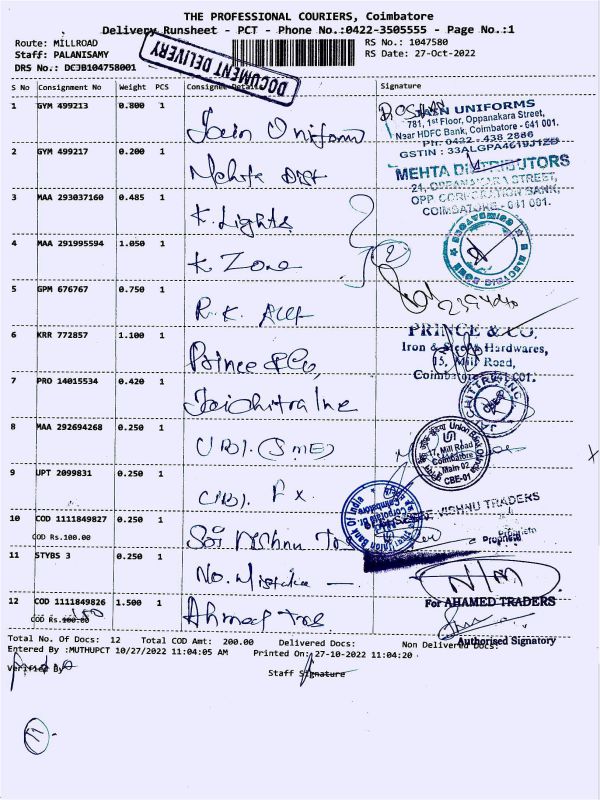 THE PROFESSIONAL COURIERS, Coimbatore
Delivery Runsheet - PCT - Phone No.:0422-3505555 - Page No.:1
Route: MILLROAD
RS No.: 1047580
Staff: PALANISAMY
RS Date: 27-Oct-2022
DRS No.: DCJB104758001
DOCUMENT DELIVERY
S No Consignment No Weight PCS Consignee Details Signature
1 GYM 499213 0.800 1 Jain Uniform
ROSHAN
JAIN UNIFORMS
781, 1st Floor, Oppanakara Street,
Near HDFC Bank, Coimbatore - 641 001.
Ph: 0422 - 438 2886
GSTIN : 33ALGPA4619J1ZD
2 GYM 499217 0.200 1 Mehta Dist
MEHTA DISTRIBUTORS
21, OPPANAKARA STREET,
OPP CORPORATION BANK,
COIMBATORE - 641 001.
3 MAA 293037160 0.485 1 K. Lights
4 MAA 291995594 1.050 1 K Zone
2
5 GPM 676767 0.750 1 R.K.
6 KRR 772857 1.100 1 Prince & Co,
PRINCE & CO.
Iron & Steels Hardwares,
15, Mill Road,
Coimbatore 641 001.
7 PRO 14015534 0.420 1 Jaichitra Inc
8 MAA 292694268 0.250 1 UBI. (SME)
Union Bank
17, Mill Road
Coimbatore
Main 02
CBE-01
9 UPT 2099831 0.250 1 UBI. Fx.
Union Bank Of India
Corporate Br.
Coimbatore
10 COD 1111849827 0.250 1 Sri Vishnu Tra
COD Rs.100.00
VISHNU TRADERS
Proprietor
11 STYBS 3 0.250 1 No. Mistake —
N/M
12 COD 1111849826 1.500 1 Ahmed Tra
COD Rs.100.00
For AHAMED TRADERS
Authorised Signatory
Total No. Of Docs: 12 Total COD Amt: 200.00 Delivered Docs: Non Delivered Docs:
Entered By :MUTHUPCT 10/27/2022 11:04:05 AM Printed On: 27-10-2022 11:04:20
Verified By
Staff Signature